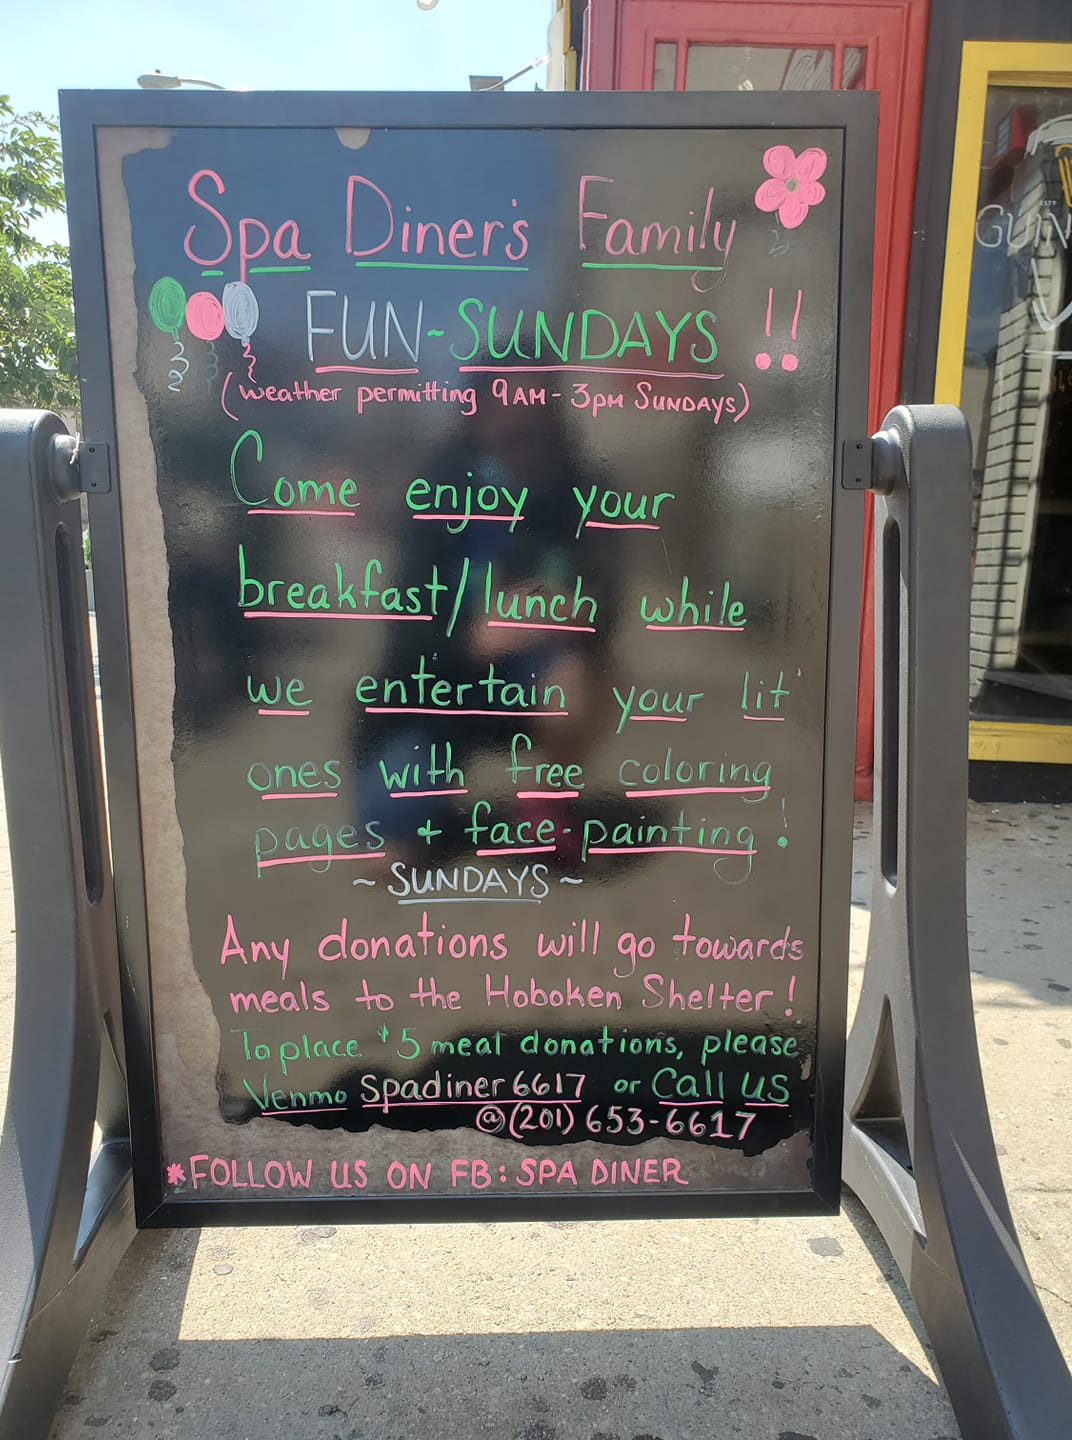 Spa Diner's Family
FUN~SUNDAYS !!
(weather permitting 9AM-3PM SUNDAYS)
Come enjoy your
breakfast/lunch while
we entertain your lit'
ones with free coloring
pages + face-painting!
~SUNDAYS~
Any donations will go towards
meals to the Hoboken Shelter!
To place $5 meal donations, please
Venmo Spadiner6617 or Call us
@(201) 653-6617
*FOLLOW US ON FB: SPA DINER